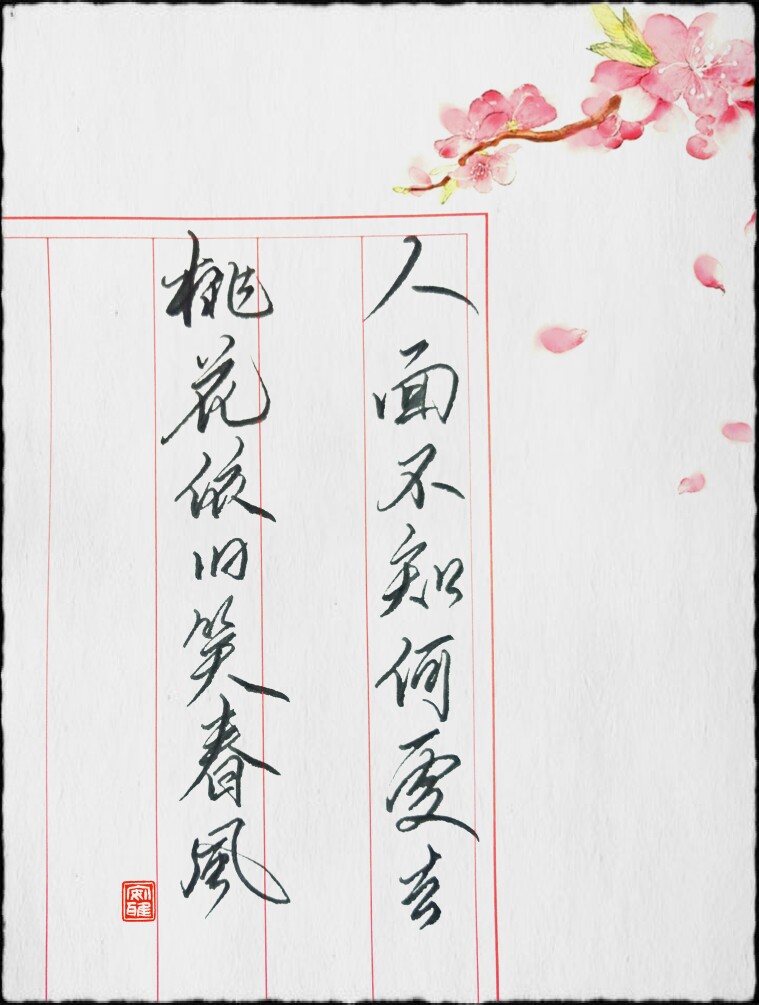 人面不知何處去
桃花依旧笑春風